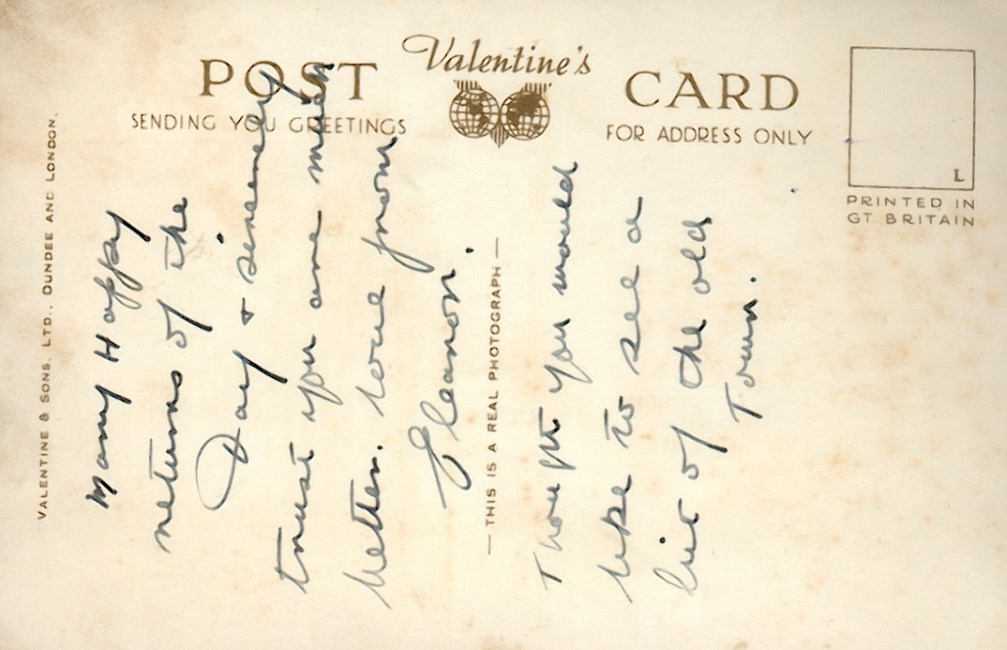 POST
Valentine's
CARD
SENDING YOU GREETINGS
FOR ADDRESS ONLY
L
PRINTED IN
GT. BRITAIN
VALENTINE & SONS. LTD., DUNDEE AND LONDON.
Many Happy
returns of the
Day & sincerely
trust you are much
better. love from
Eleanor.
— THIS IS A REAL PHOTOGRAPH —
Thought you would
like to see a
bit of the old
Town.